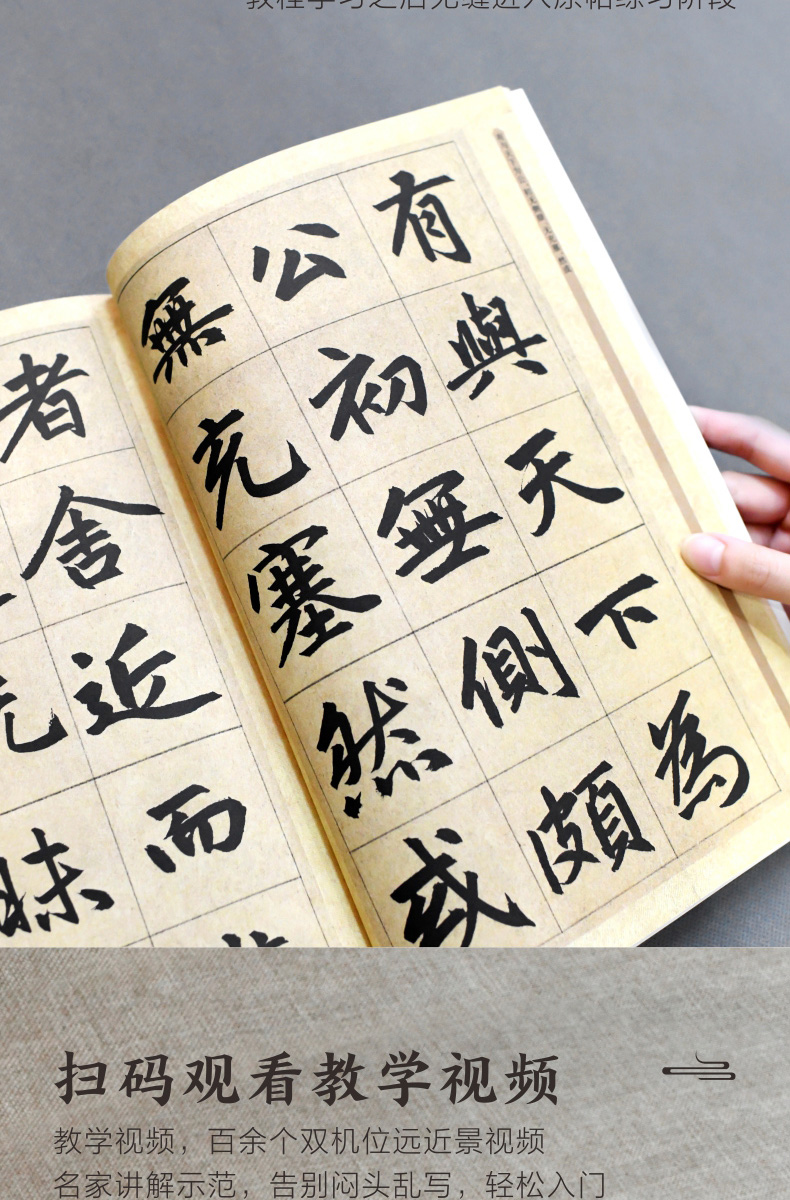 教程学习之后无缝进入原帖练习阶段
有與天下為
公初無側頗
無充塞然或
者舍近而
昧
扫码观看教学视频
教学视频，百余个双机位远近景视频
名家讲解示范，告别闷头乱写，轻松入门